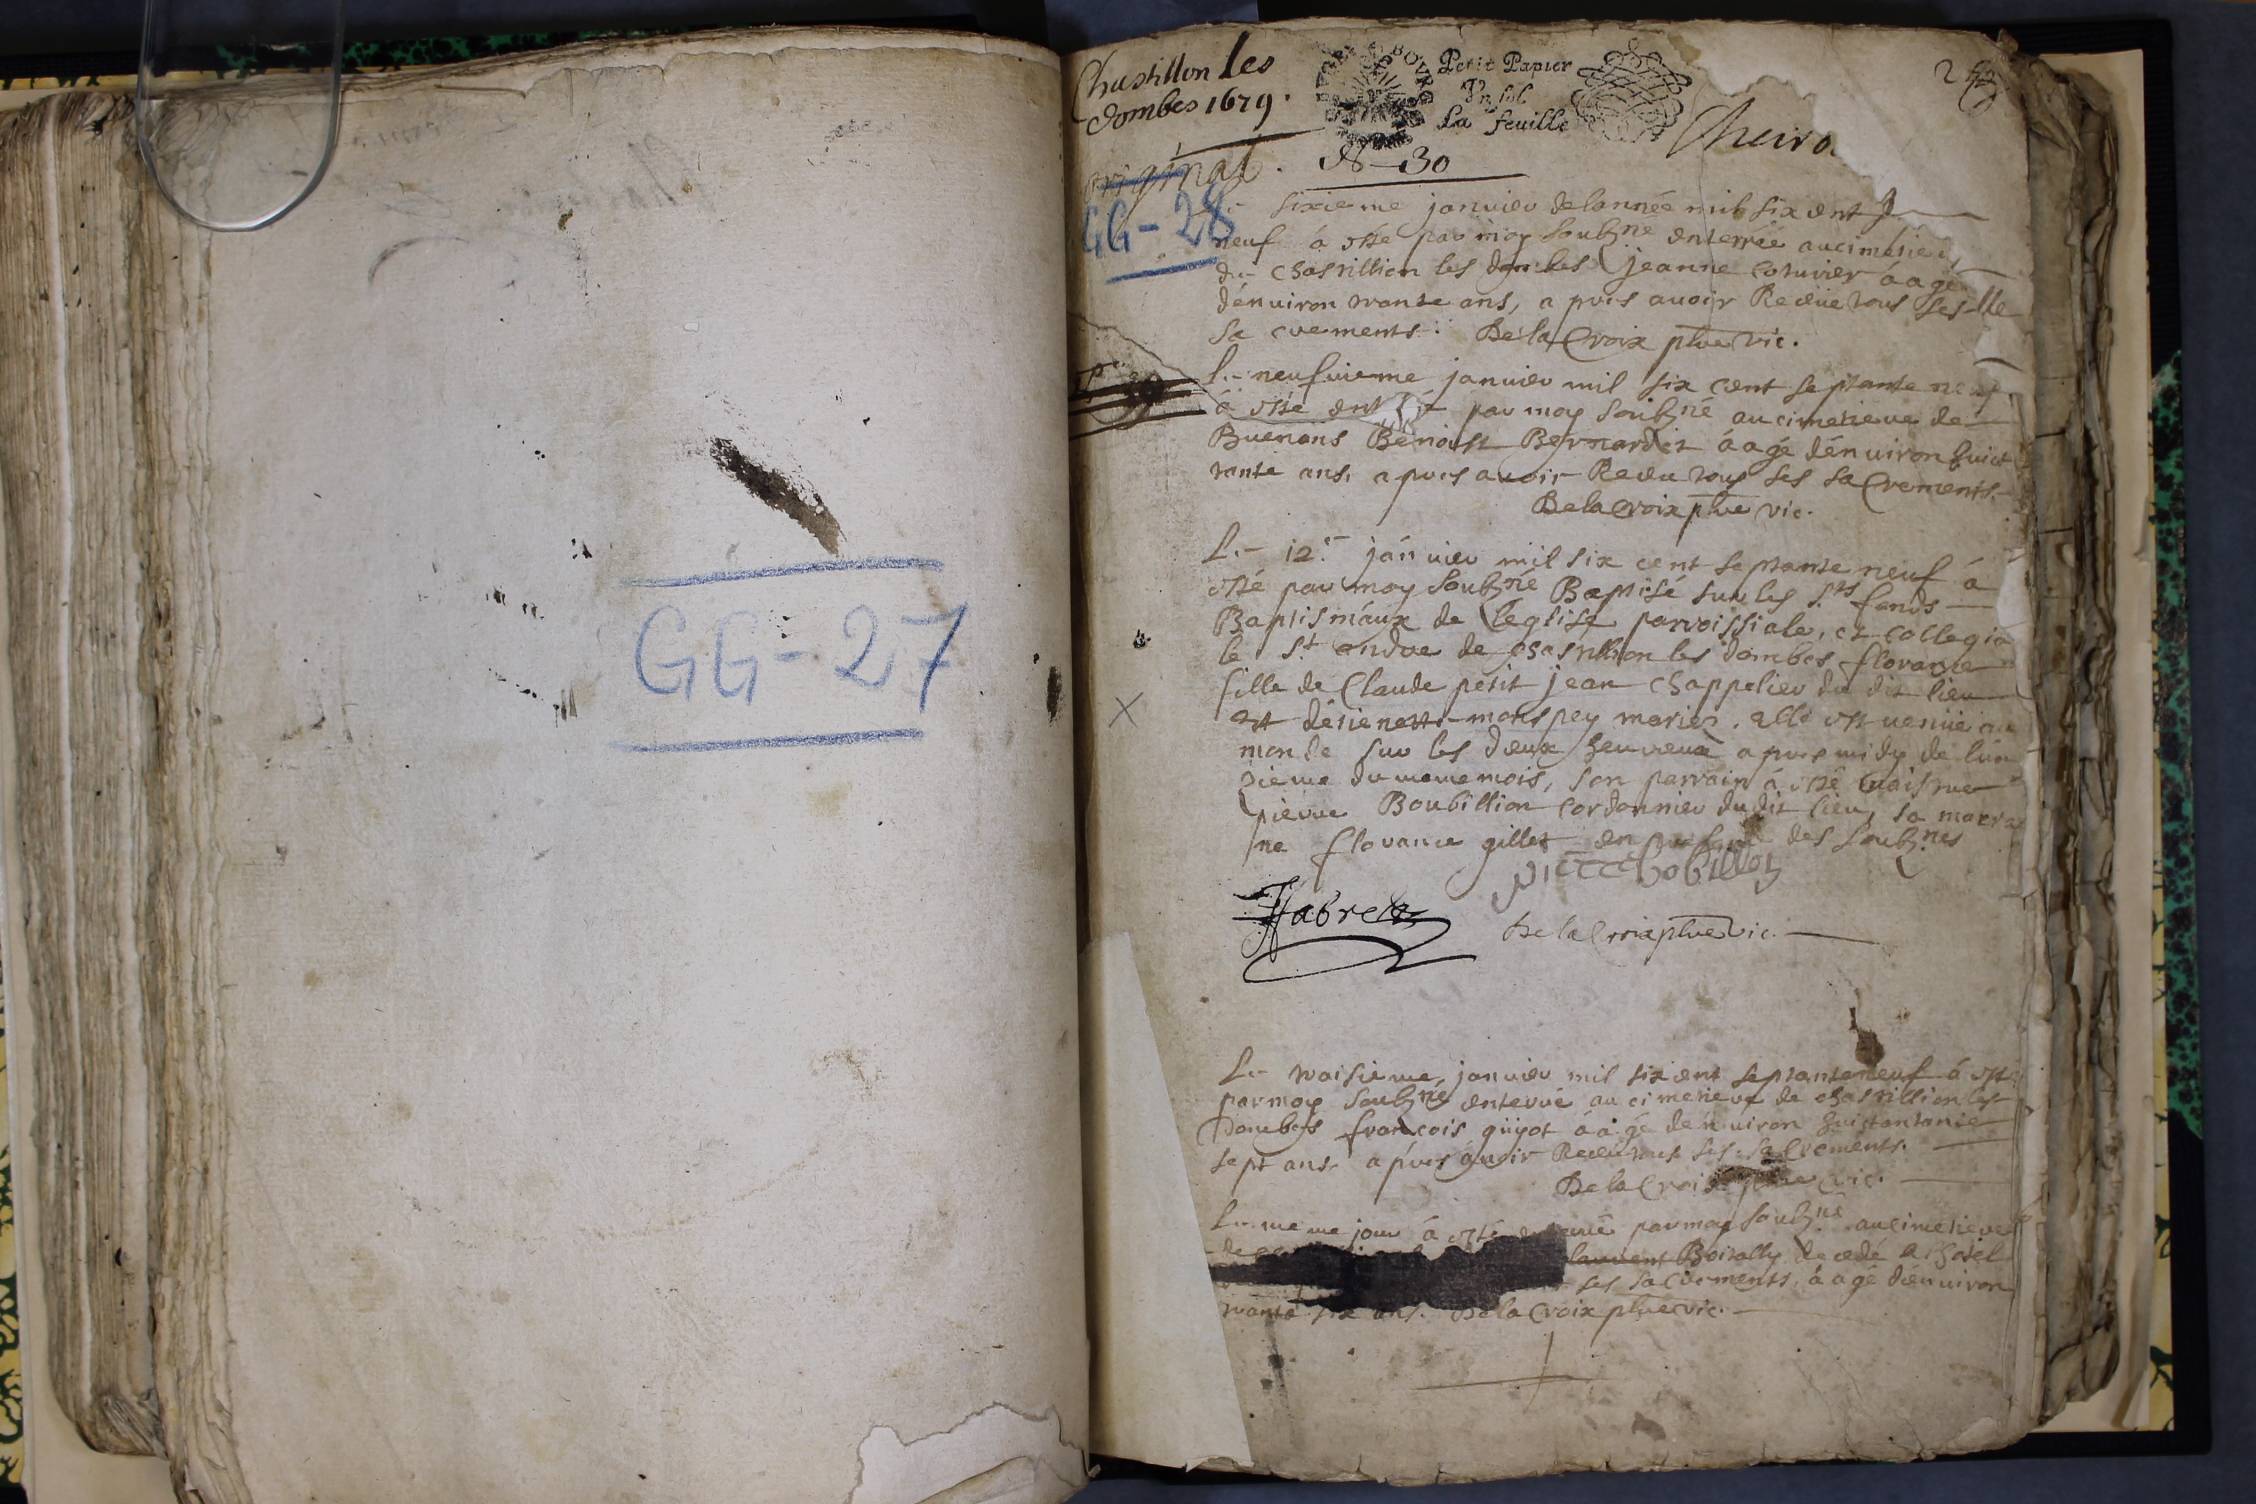 GG-27
Chastillon les
dombes 1679.
Petit Papier
Un sol
La feuille
original.
N 30
GG-28
sixieme janvier de lannée mil six cent
neuf á esté par moy soubzné enterrée au cimetiere
de chastillion les dombes jeanne coturier áagée
dénviron trante ans, apres avoir Receue tous ses
sacrements. De la Croix pbre vic.
Le neufvieme janvier mil six cent septante neuf
á esté par moy soubzné au cimetiere de
Buenans Benoist Bernardet áagé dénviron huict
tante ans, apres avoir Receu tous ses sacrements.
De la Croix pbre vic.
Le 12e janvier mil six cent septante neuf á
esté par moy soubzné Baptisé sur les sts fonds
Baptismaux de Léglise parroissiale, et collegia
le st andre de chastillion les dombes florance
fille de Claude petit jean chappelier du dit lieu
et détienette monspey mariez. elle est venüe au
monde sur les deux heures apres midy de lún
zieme du meme mois, son parrain á esté maistre
pierre Boubillion cordonnier du dit lieu, sa marrai
ne florance gillet en des soubznes
De la Croix pbre vic.
Le troisieme janvier mil six cent septante neuf á esté
par moy soubzné enterré au cimetiere de chastillion les
Dombes francois guyot áagé dénviron huictantante
sept ans. apres avoir Receu tous ses sacrements.
De la Croix pbre vic.
Le meme jour á esté enterré par moy soubzné au cimetiere
laurent decedé
ses sacrements, áagé dénviron
trante six ans. De la Croix pbre vic.